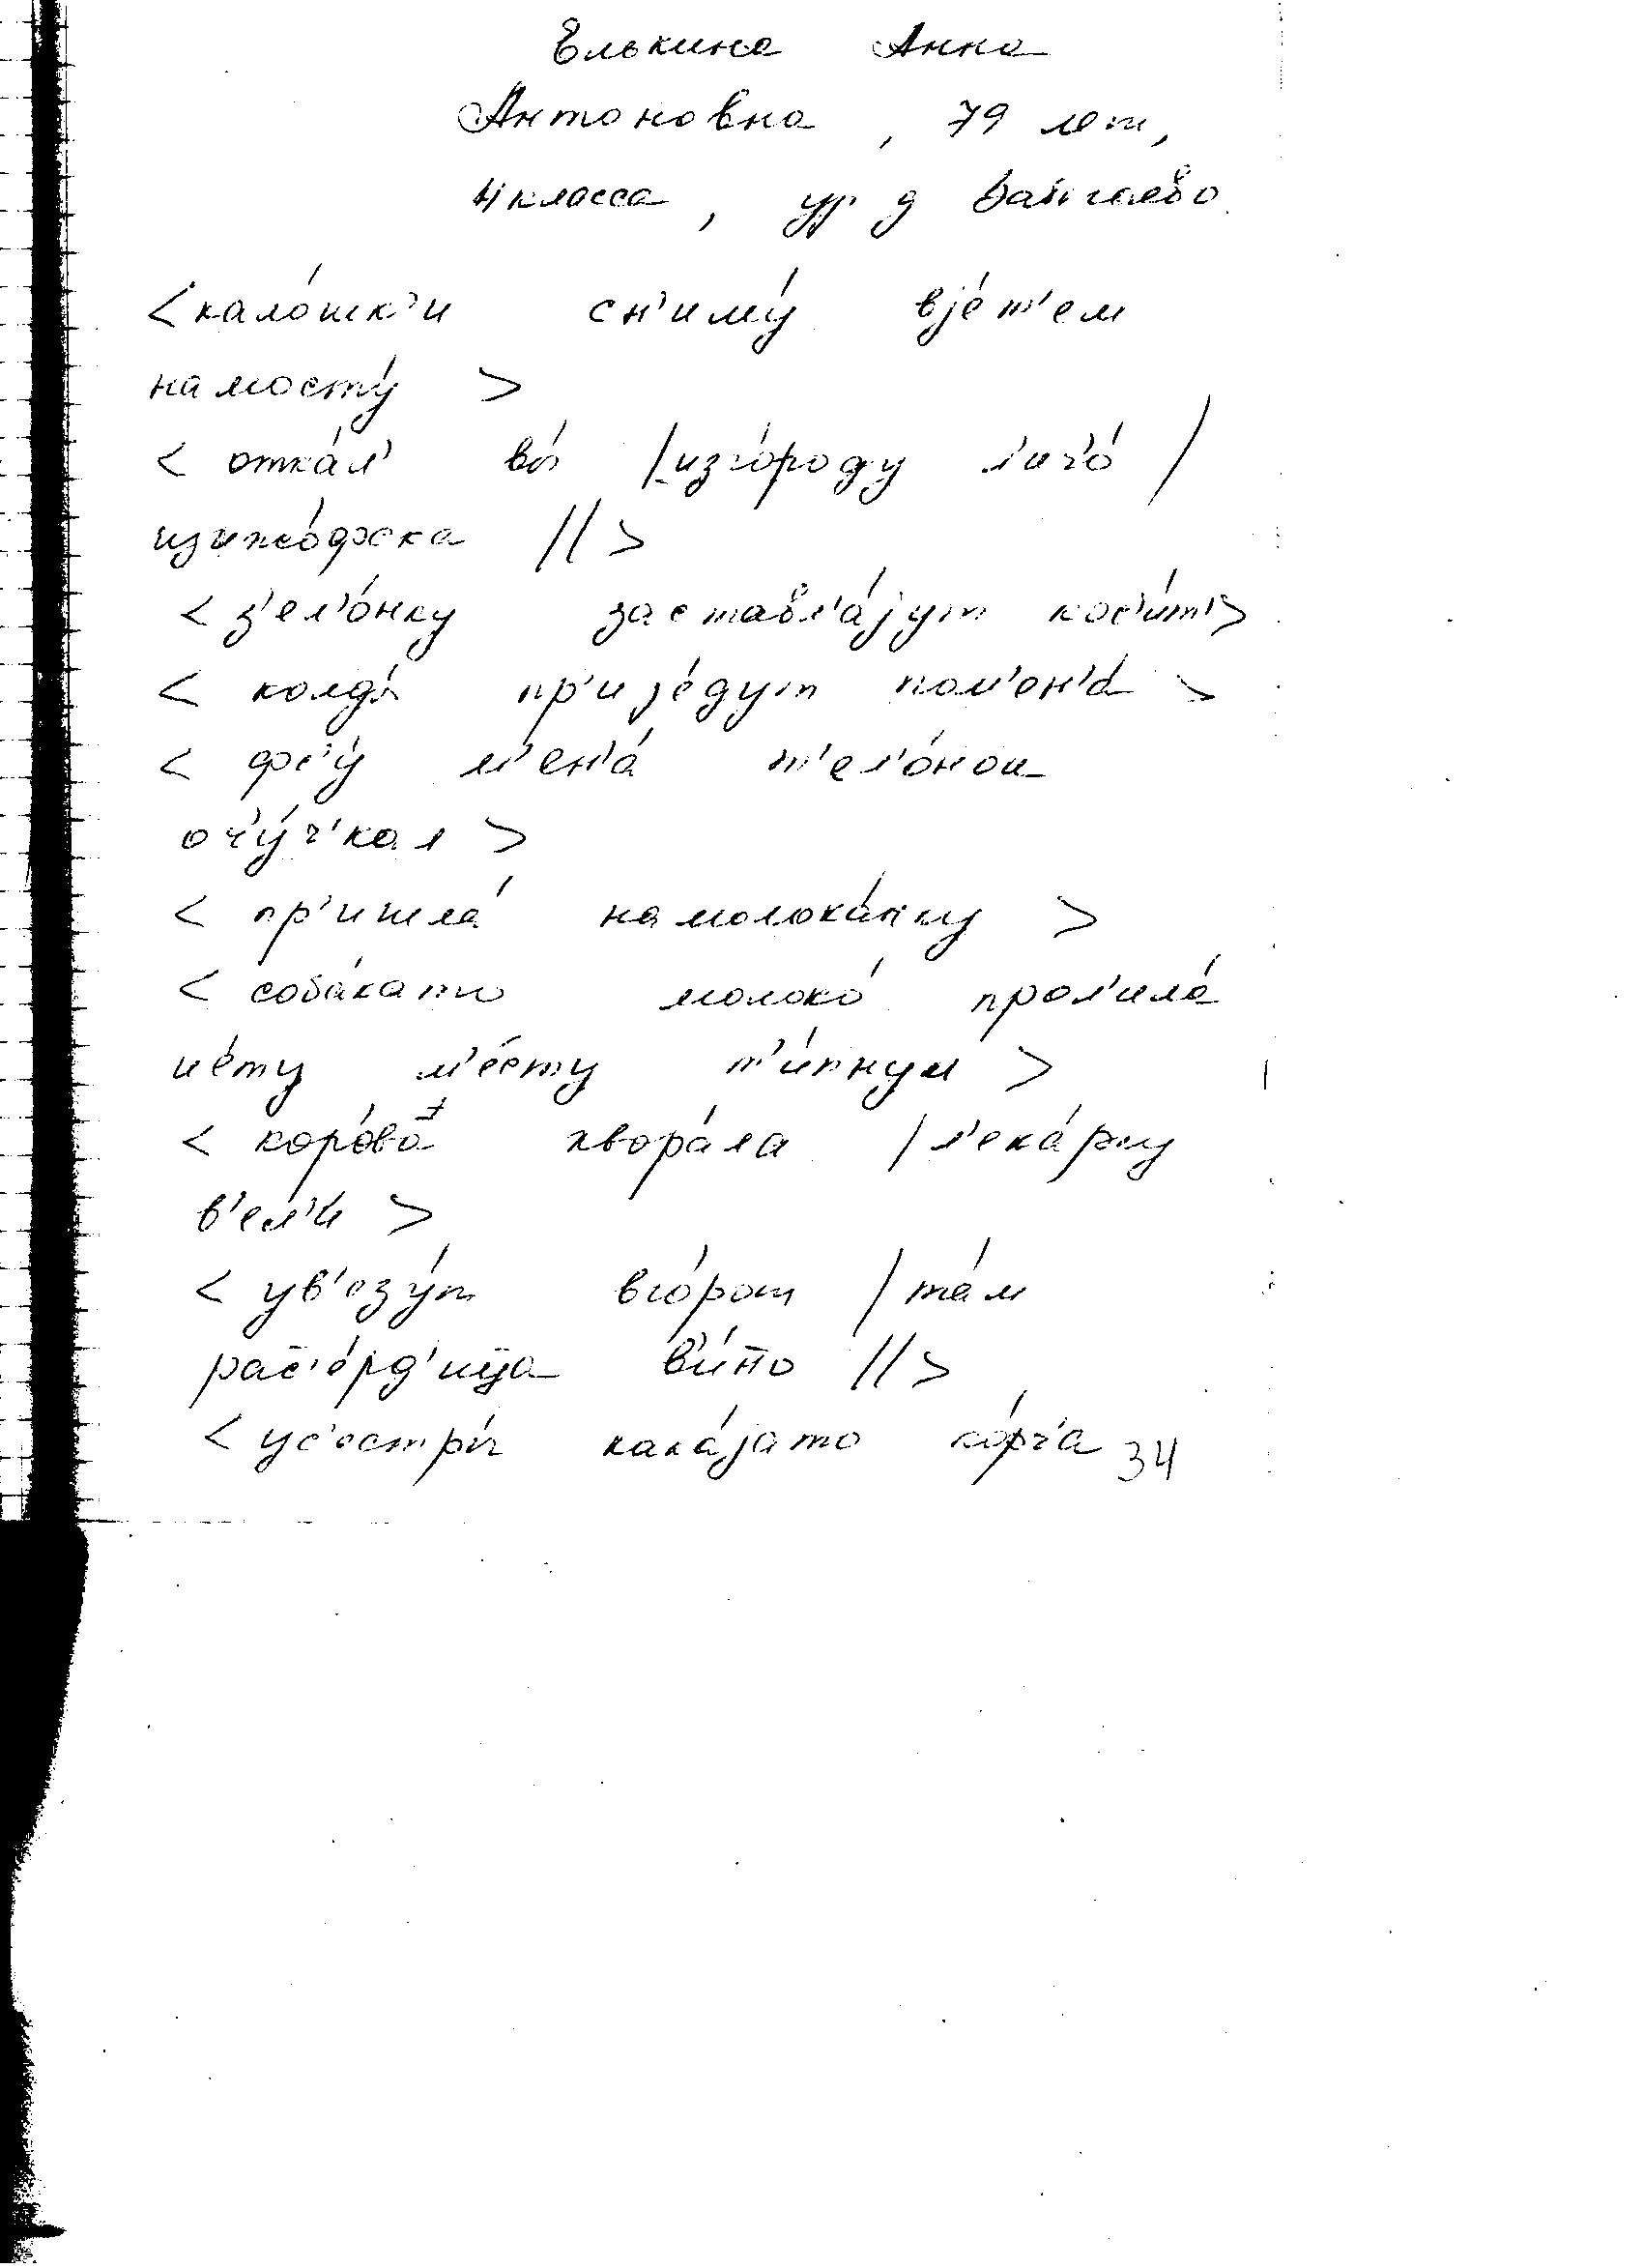 Елькина Анна
Антоновна, 79 лет,
4 класса, ур д
<кало́шк'и с'н'иму́ вjе́т'ем
намосту́ >
< отка́л' вы́ | изго́роду л'и ч'о́ |
изижо́фска || >
< з'ел'о́нку заставл'а́jут кос'и́т'>
< колды́ пр'иjе́дут пом'ен'а́ >
< фс'у́ м'ен'а́ т'ел'о́нои
оч'у́ч'кал >
< пр'ишла́ намолока́нку >
< соба́като молоко́ прол'ила́
и е́ту м'е́сту т'и́пнул >
< коро́ва хвора́ла | л'ека́рку
в'ел'и́ >
< ув'езу́т вго́рот | та́м
рас'е́рд'ица ви́то || >
< ус'естры́ кака́jато ко́рч'а 34